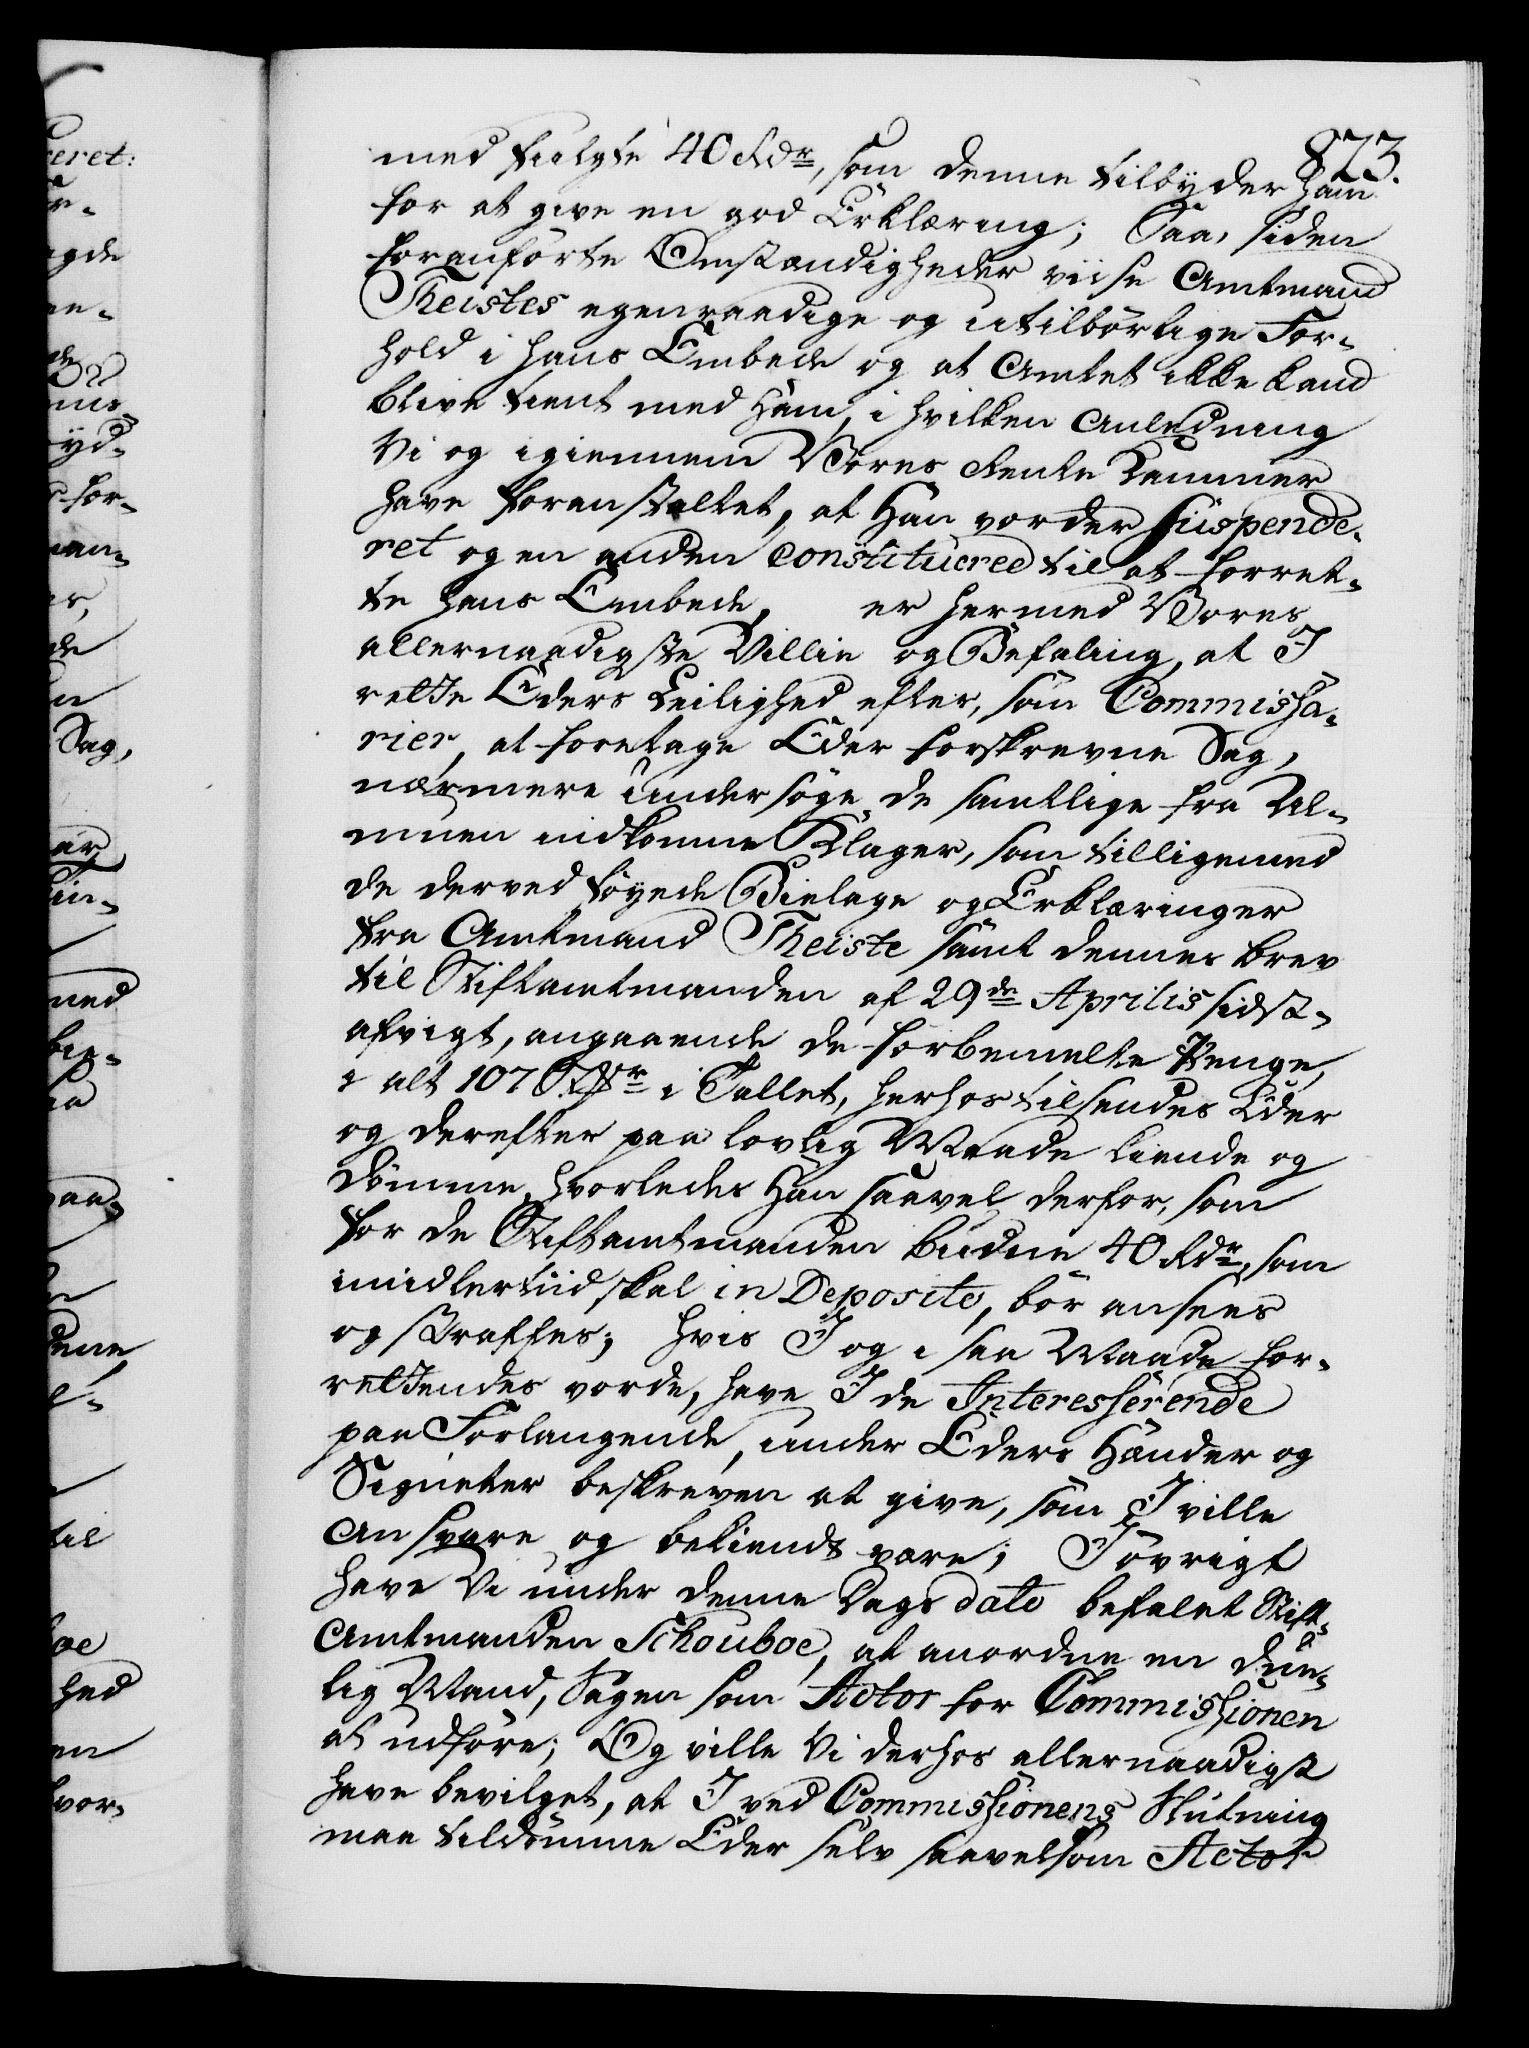 873.
med fuldte 40 Rdr, som denne tilbyder ham
for at give en god Erklæring; Saa, siden
foranförte Omstændigheder viise Amtmand
Theistes egenraadige og utilbörlige For-
hold i hans Embede og at Amtet ikke kand
blive tient med Ham, i hvilken Anledning
Vi og igiennem Vores Rente Kammer
have foranstaltet, at Han vorder suspende-
ret og en anden constitueret til at forret-
te hans Embede, er hermed Vores
allernaadigste Villie og Befaling, at I
rette Eders Leilighed efter, som Commissa-
rier, at foretage Eder forskrevne Sag,
nærmere undersöge de samtlige fra Al-
muen indkomne Klager, som tilligemed
de derved föyede Bielage og Erklæringer
fra Amtmand Theiste samt dennes brev
til Stiftamtmanden af 29de Aprilis sidst-
afvigt, angaaende de forbemelte Penge,
i alt 107 Rdr i Tallet, herhos tilsendes Eder
og derefter paa lovlig Maade kiende og
dömme, hvorledes Han saavel derfor, som
for de Stiftamtmanden budne 40 Rdr, som
imidlertiid skal in Deposito, bör ansees
og straffes; hvis I og i saa Maade for-
rettendes vorde, have I de Interesserende
paa Forlangende, under Eders Hænder og
Signeter beskreven at give, som I ville
Ansvare og bekiendt være; I övrigt
have Vi under denne Dags dato befalet Stift-
Amtmanden Schouboe, at anordne en due-
lig Mand, Sagen som Actor for Commissionen
at udföre; Og ville Vi derhos allernaadigst
have bevilget, at I ved Commissionens Slutning
maa tildömme Eder selv saavelsom Actor